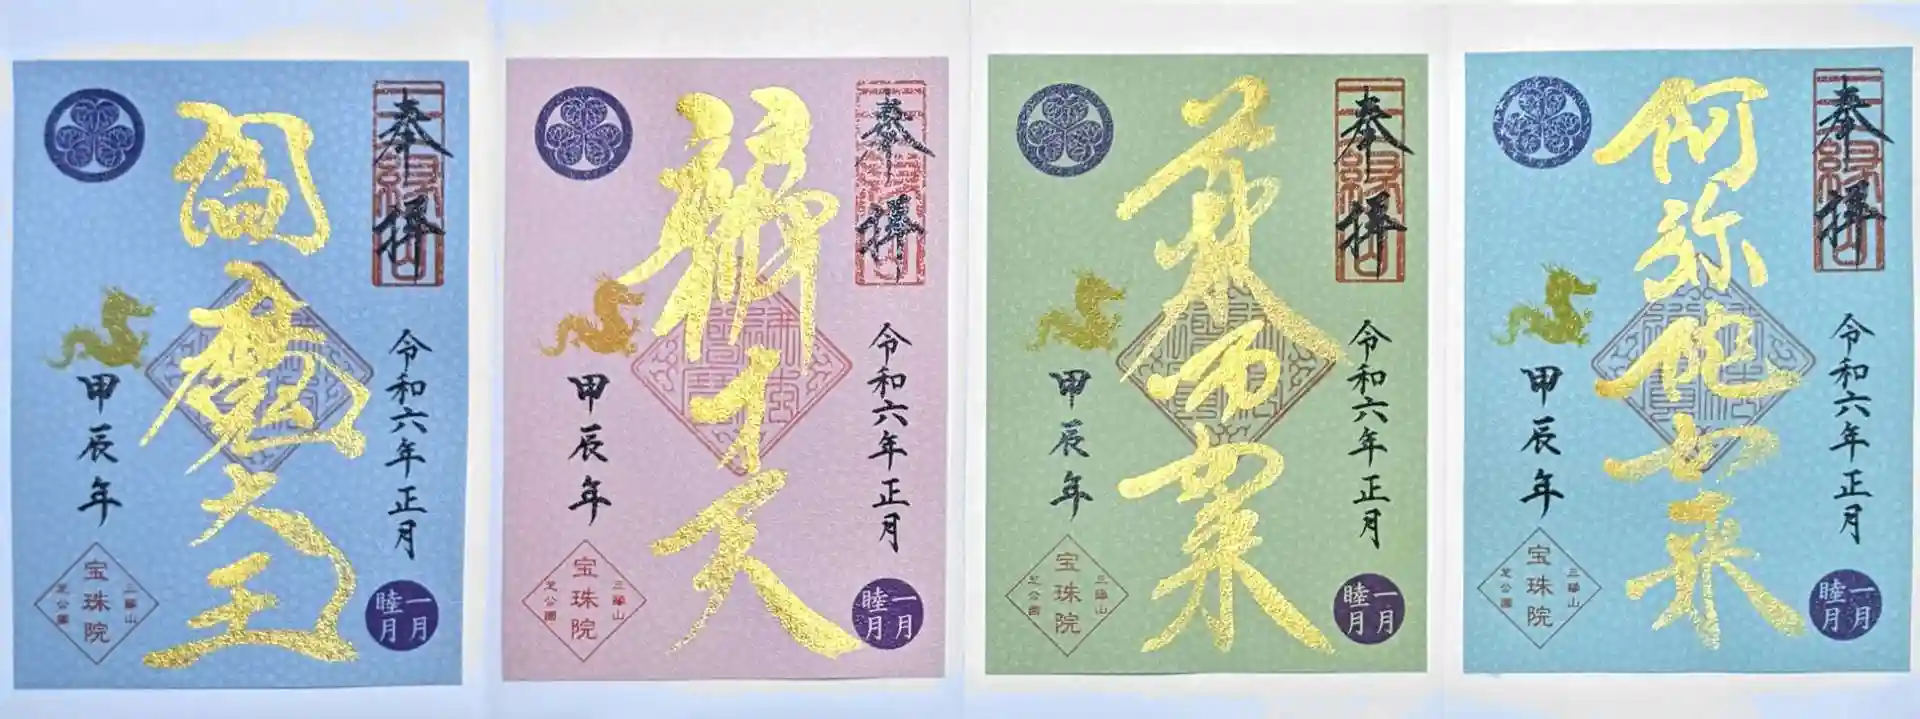 奉拝
令和六年正月
一月
睦月
閻魔大王
甲辰年
三縁山
宝珠院
芝公園
奉拝
令和六年正月
一月
睦月
辨才天
甲辰年
三縁山
宝珠院
芝公園
奉拝
令和六年正月
一月
睦月
薬師如来
甲辰年
三縁山
宝珠院
芝公園
奉拝
令和六年正月
一月
睦月
阿弥陀如来
甲辰年
三縁山
宝珠院
芝公園